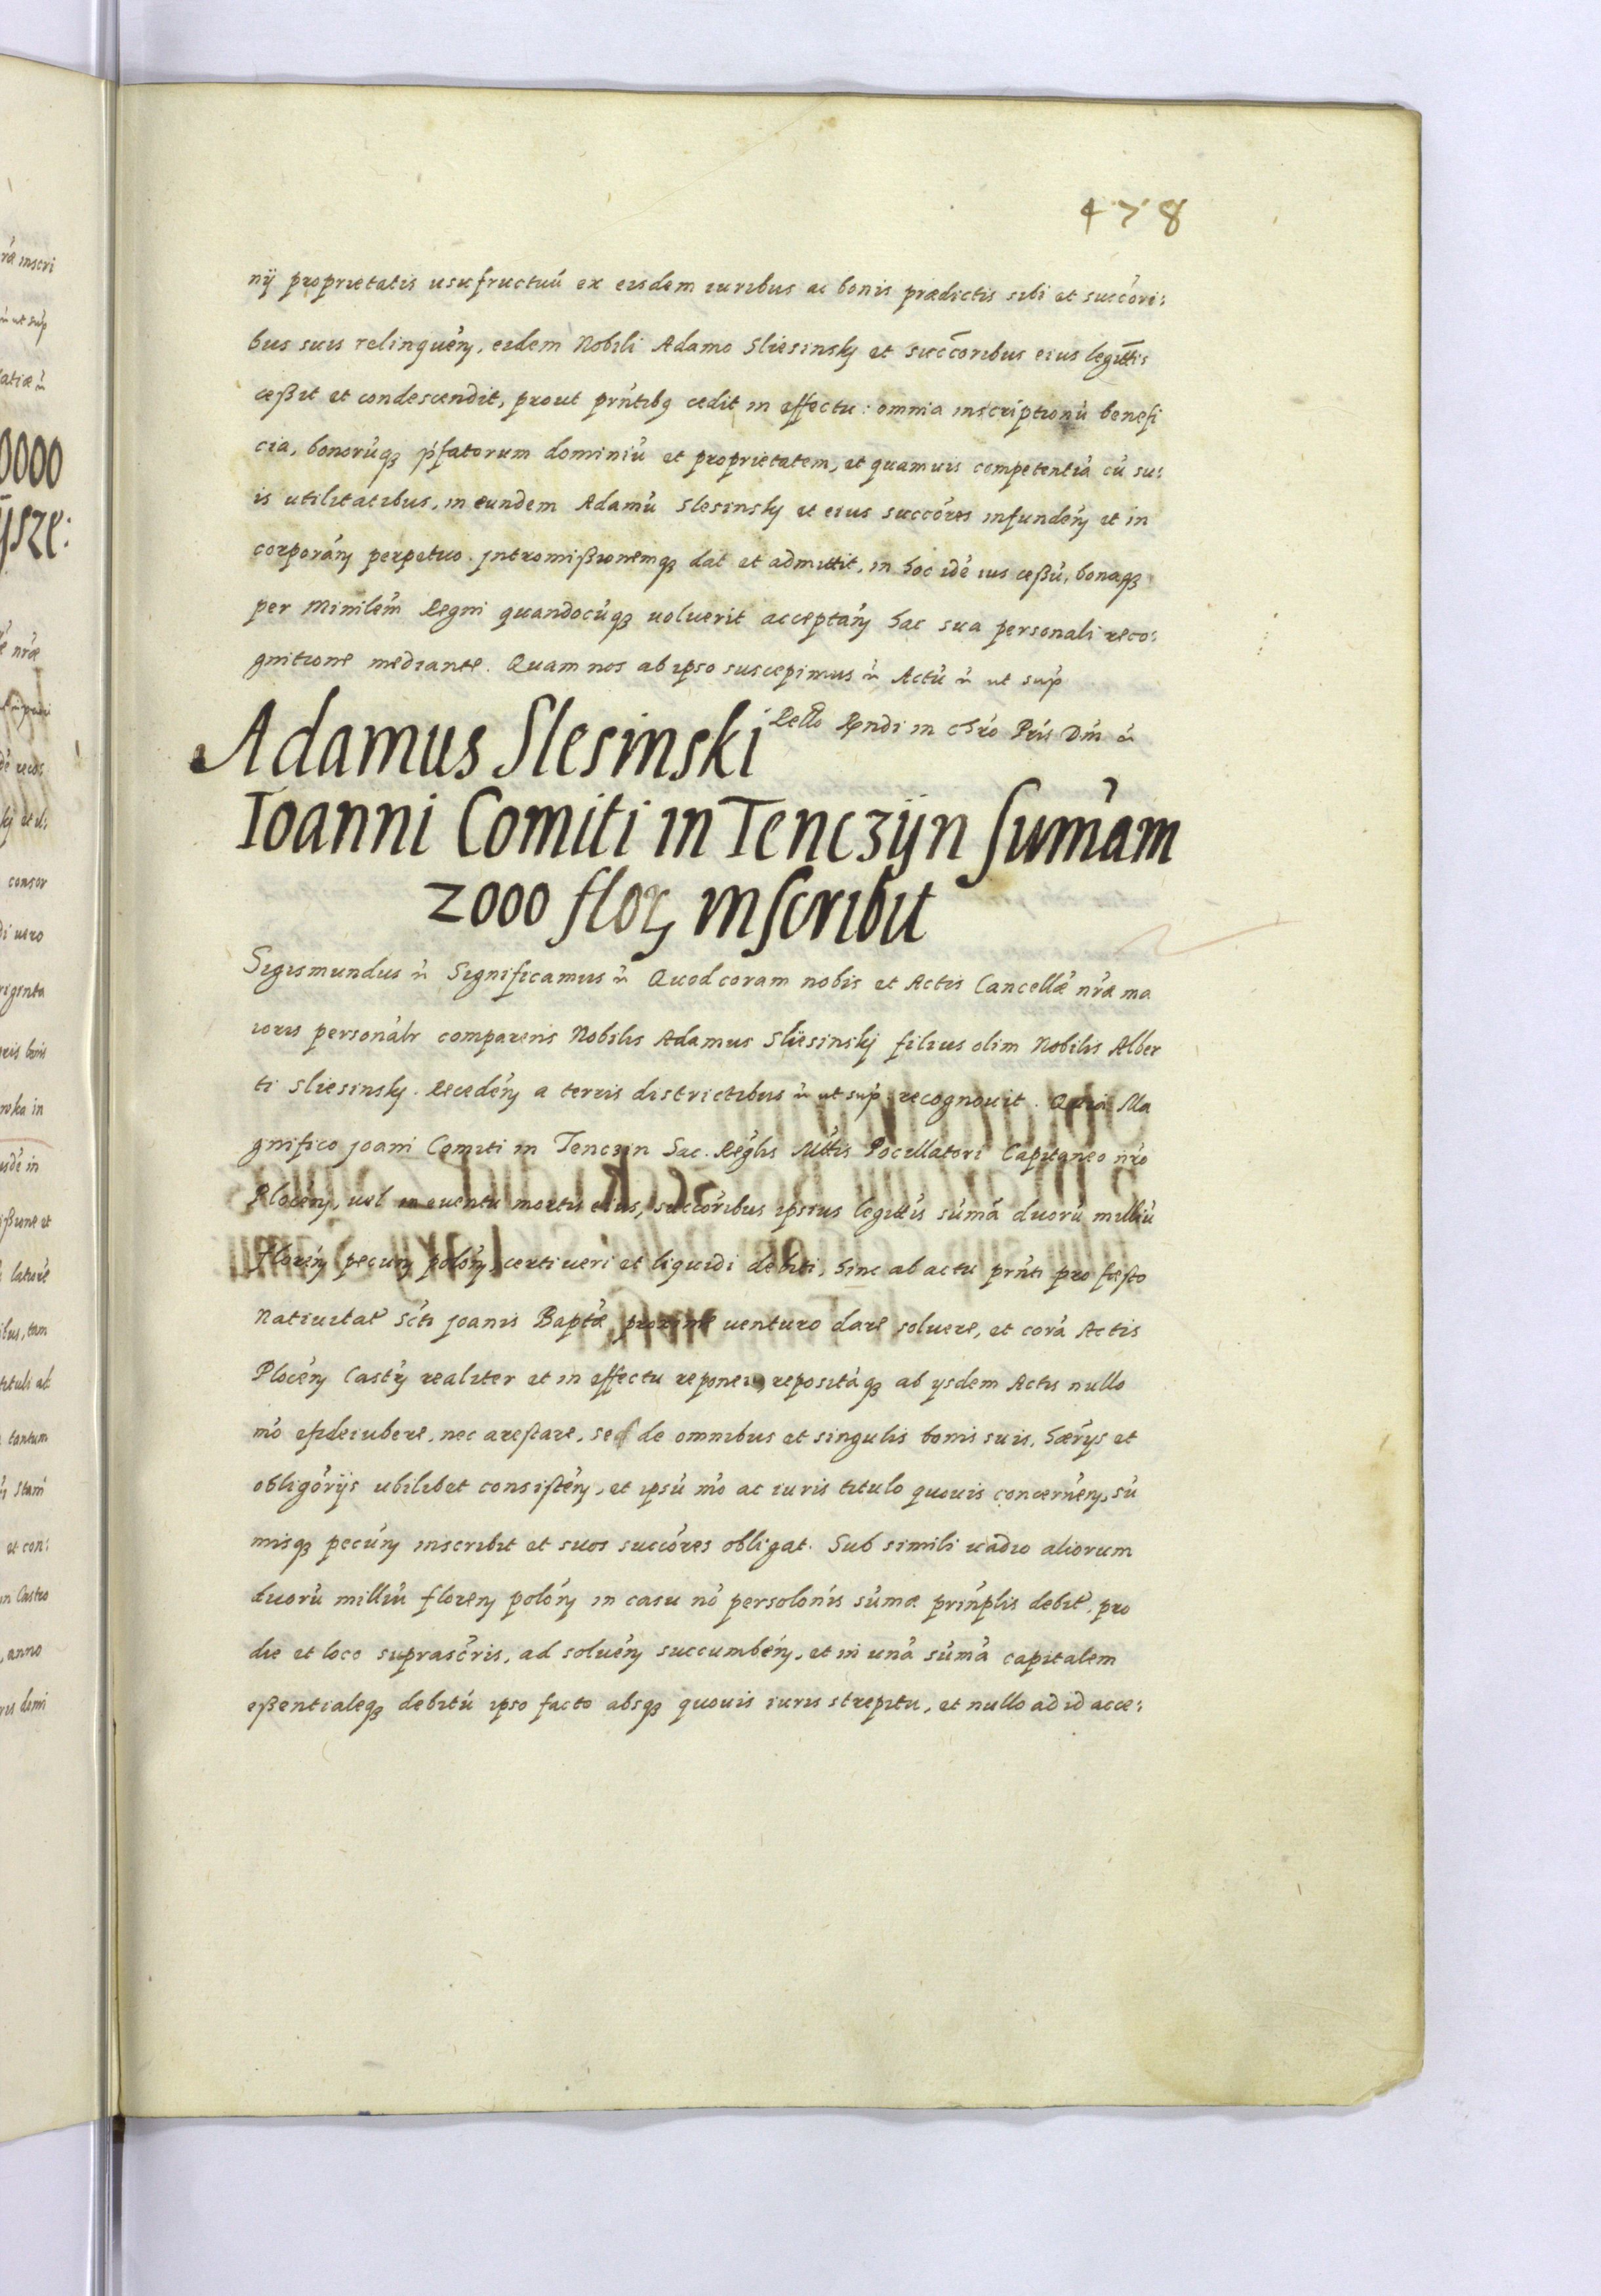 478
nij proprietatis usufructuū ex eisdem iuribus ac bonis prædictis sibi et succōri:
bus suis relinquēn, eidem Nobili Adamo Sliesinskj et succōribus eius legittīs
ceßit et condescendit, prout prn̄tibꝫ cedit in effectu: omnia inscriptionū benefi
cia, bonorūqꝫ p̄fatorum dominiū et proprietatem, et quamuis competentiā cū su:
is utilitatibus, in eundem Adamū Slesinskj et eius succōres infundēn et in
corporān perpetuo. Intromißionemqꝫ dat et admittit, in hoc idē ius ceßū, bonaqꝫ
per Minilēm Regni quandocūqꝫ uoluerit acceptān hac sua personali reco:
gnitione mediante. Quam nos ab ipso suscepimus ñ Actū ñ ut sup̄
Rello Rndi in Chrō Pr̄is Dn̄i ñ
Adamus Slesinski
Ioanni Comiti in Tenczijn sum̄am
2000 floꝝ inscribit
Sigismundus ñ Significamus ñ Quod coram nobis et Actis Cancellæ nr̄æ ma
ioris personalr̄ comparens Nobilis Adamus Sliesinskj filius olim Nobilis Alber
ti Sliesinskj. Recedēn a terris districtibus ñ ut sup̄ recognouit. Quia Ma
gnifico Joani Comiti in Tenczin Sac. Reḡlis Mttīs Pocillatori Capitaneo nr̄o
Plocēn, uel in euentu mortis eius, succōribus ipsius legittīs sūmā duorū milliū
florēn pecun̄ polōn, certi ueri et liquidi debiti, hinc ab actu prn̄ti pro festo
Natiuitat̄ Sc̄ti Joanis Bapt̄æ proxime uenturo dare soluere, et corā Actis
Plocēn Castr̄n realiter et in effectu reponere, repositāqꝫ ab ysdem Actis nullo
mō efideiubere, nec arestare, sed de omnibus et singulis bonis suis, hær̄ys et
obligōrijs ubilibet consistēn, et ipsū mō ac iuris titulo quouis concernēn, sū
misqꝫ pecūn inscribit et suos succōres obligat. Sub simili uadio aliorum
duorū milliū floren polōn in casu nō persolōnis sūmæ prin̄plis debit̄, pro
die et loco suprascr̄is, ad soluēn succumbēn, et in unā sūmā capitalem
eßentialeqꝫ debitū ipso facto absqꝫ quouis iuris strepitu, et nullo ad id acce: